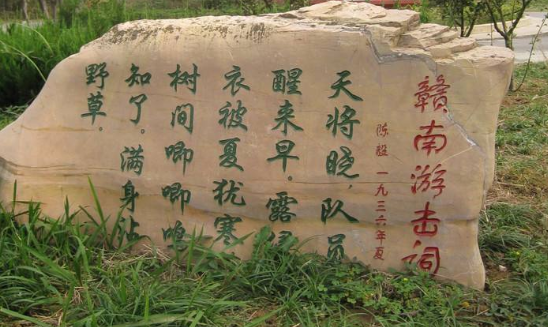 赣南游击词
陈毅 一九三六年夏
天将晓，队员
醒来早。露
衣被夏犹寒
树间唧唧鸣
知了。满身沾
野草。